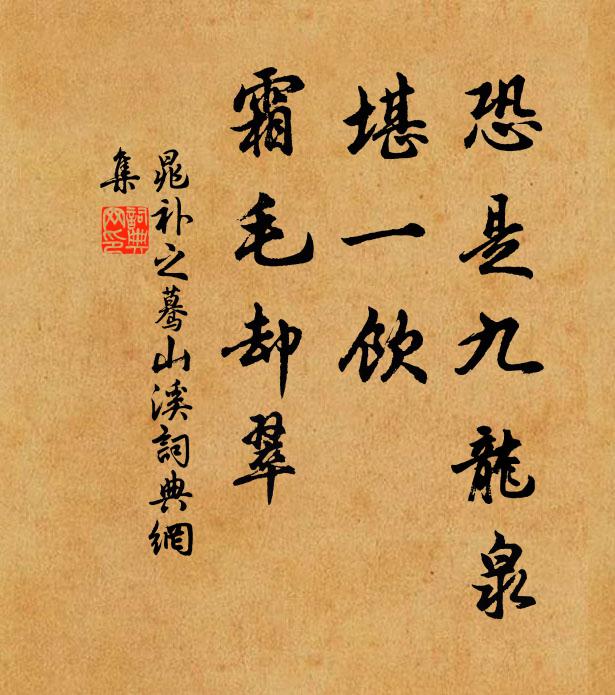 恐是九龍泉
堪一飲
霜毛却翠
晁补之驀山溪詞典網
集
詞典
网印